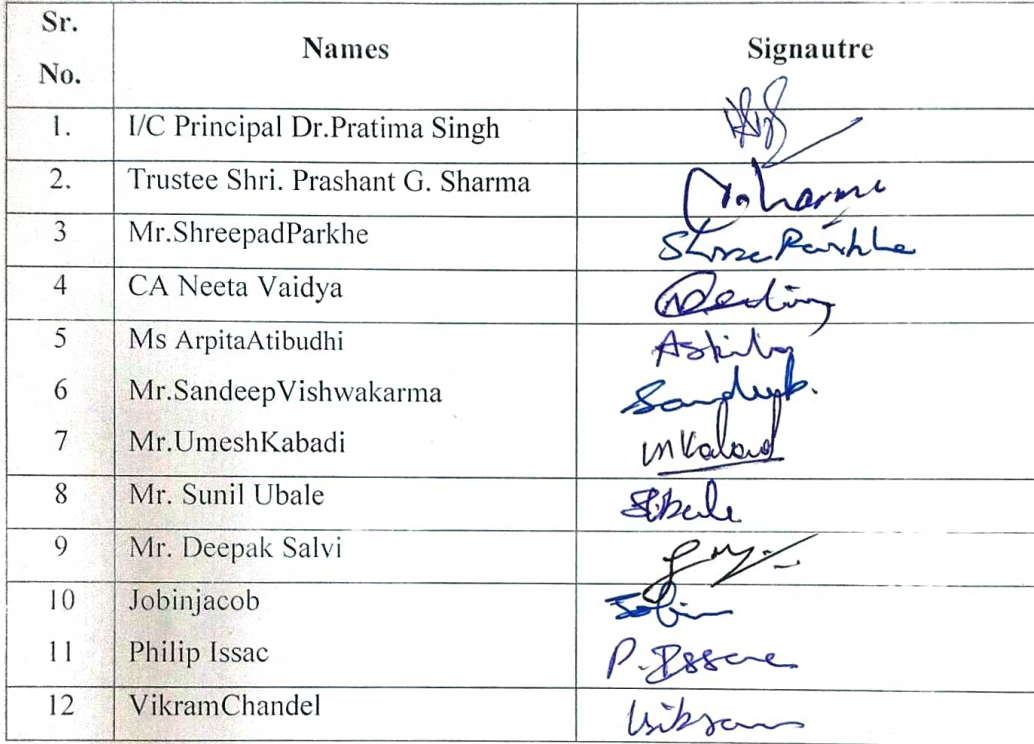 Sr. No. Names Signautre
1. I/C Principal Dr.Pratima Singh
2. Trustee Shri. Prashant G. Sharma
3 Mr.ShreepadParkhe
4 CA Neeta Vaidya
5 Ms ArpitaAtibudhi
6 Mr.SandeepVishwakarma
7 Mr.UmeshKabadi
8 Mr. Sunil Ubale
9 Mr. Deepak Salvi
10 Jobinjacob
11 Philip Issac P. Issac
12 VikramChandel Vikram